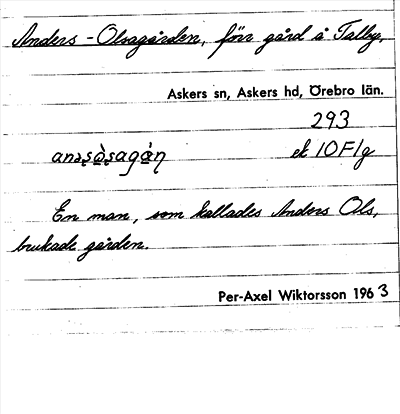 Anders-Olsagården, förr gård å Talby,
Askers sn, Askers hd, Örebro län.
293
ek 10F/g
En man, som kallades Anders Ols,
brukade gården.
Per-Axel Wiktorsson 1963